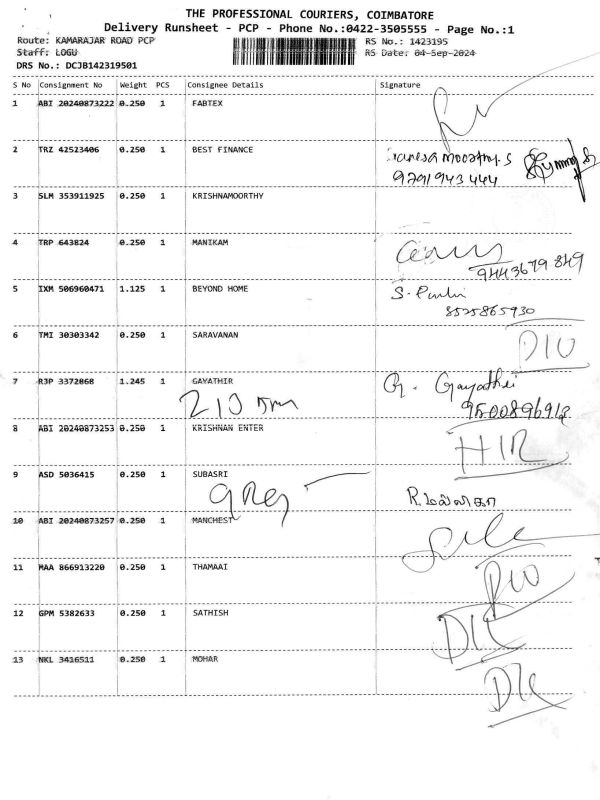 THE PROFESSIONAL COURIERS, COIMBATORE
Delivery Runsheet - PCP - Phone No.:0422-3505555 - Page No.:1
Route: KAMARAJAR ROAD PCP RS No.: 1423195
Staff: LOGU RS Date: 04-Sep-2024
DRS No.: DCJB142319501
S No Consignment No Weight PCS Consignee Details Signature
1 ABI 20240873222 0.250 1 FABTEX
2 TRZ 42523406 0.250 1 BEST FINANCE
9791943444
3 SLM 353911925 0.250 1 KRISHNAMOORTHY
4 TRP 643824 0.250 1 MANIKAM
9443679849
5 IXM 506960471 1.125 1 BEYOND HOME S.
8525865930
6 TMI 30303342 0.250 1 SARAVANAN
7 RJP 3372868 1.245 1 GAYATHIR G. Gayathri
9500896912
8 ABI 20240873253 0.250 1 KRISHNAN ENTER
9 ASD 5036415 0.250 1 SUBASRI
10 ABI 20240873257 0.250 1 MANCHEST
11 MAA 866913220 0.250 1 THAMAAI
12 GPM 5382633 0.250 1 SATHISH
13 NKL 3416511 0.250 1 MOHAR